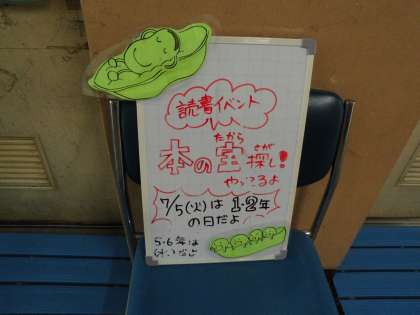 読書イベント
たから さが
本の宝探し!
やってるよ
7/5(火)は1・2年
の日だよ
5・6年は